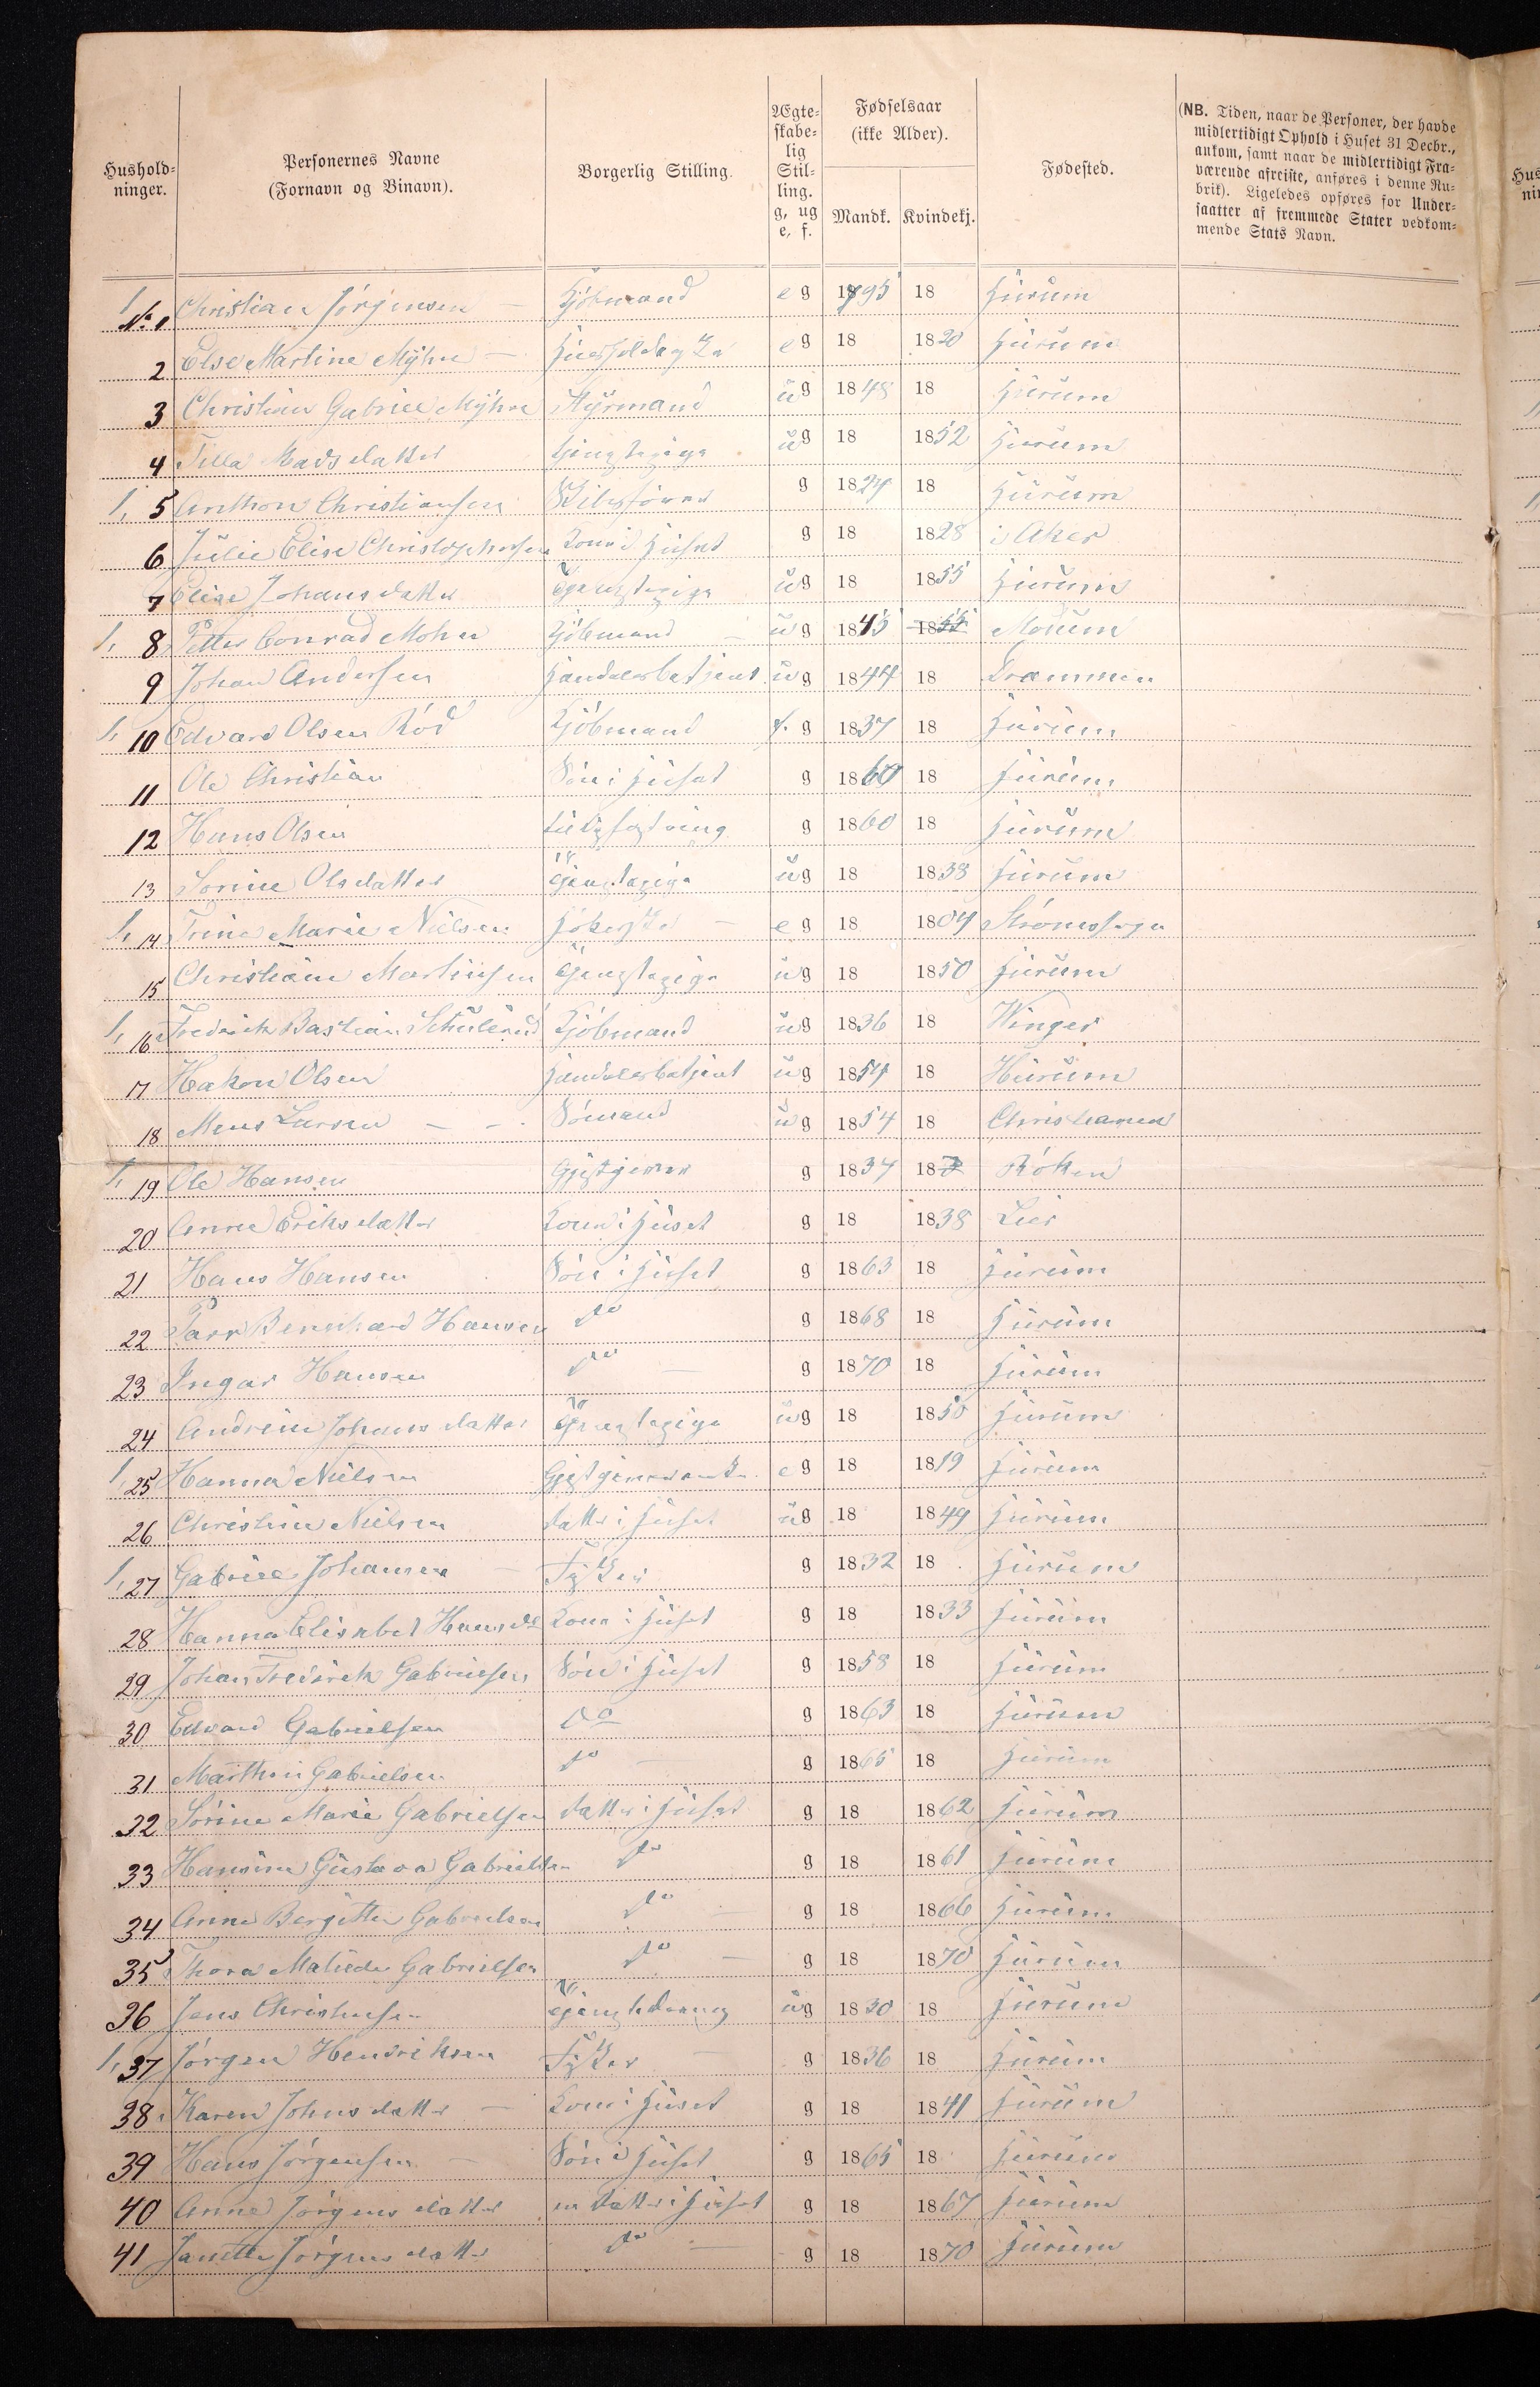 Hushold-
ninger.
Personernes Navne
(Fornavn og Binavn).
Borgerlig Stilling.
Ægte-
skabe-
lig
Stil-
ling.
g, ug
e, f.
Fødselsaar
(ikke Alder).
Mandk. Kvindekj.
Fødested.
(NB. Tiden, naar de Personer, der havde
midlertidigt Ophold i Huset 31 Decbr.,
ankom, samt naar de midlertidigt Fra-
værende afreiste, anføres i denne Ru-
brik). Ligeledes opføres for Under-
saatter af fremmede Stater vedkom-
mende Stats Navn.
1, No 1 Christian Jörgensen Kjöbmand e g 1795 18 Hurum
2 Else Martine Myhre e g 18 1820 Hurum
3 Christian Gabriel Myhre Styrmand ug 1848 18 Hurum
4 Madsdatter tjenstepige ug 18 1852 Hurum
1, 5 Anthon Christiansen Skibsförer g 1824 18 Hurum
6 Julie Elise Christophersen Kone i Huset g 18 1828 i Aker
7 Elise Johansdatter tjenstepige ug 18 1855 Hurum
1, 8 Petter Conrad Mohn Kjöbmand ug 1845 1855 Modum
9 Johan Andersen Handelsbetjent ug 1844 18 Drammen
1, 10 Edvard Olsen Röd Kjöbmand f. g 1837 18 Hurum
11 Ole Christian Sön i Huset g 1860 18 Hurum
12 Hans Olsen g 1860 18 Hurum
13 Sorine Olsdatter tjenstepige ug 18 1838 Hurum
1, 14 Trine Marie Nielsen e g 18 1804 Strömsö
15 Christiane Martinsen tjenstepige ug 18 1850 Hurum
1, 16 Fredrick Bastian Schulerud Kjöbmand ug 1836 18 Winger
17 Hakon Olsen Handelsbetjent ug 1854 18 Hurum
18 Larsen Sömand ug 1854 18 Christiania
1, 19 Ole Hansen Gjestgiver g 1834 18 Röken
20 Anne Eriksdatter Kone i Huset g 18 1838 Lier
21 Hans Hansen Sön i Huset g 1863 18 Hurum
22 Bernhard Hansen do g 1868 18 Hurum
23 Ingar Hansen do g 1870 18 Hurum
24 Andrine Johansdatter tjenstepige ug 18 1850 Hurum
1, 25 Hanna Nielsen e g 18 1819 Hurum
26 Christine Nielsen datter i Huset ug 18 1849 Hurum
1, 27 Gabriel Johansen Fisker g 1832 18 Hurum
28 Hanna Elisabet Hansd Kone i Huset g 18 1833 Hurum
29 Johan Fredrick Gabrielsen Sön i Huset g 1858 18 Hurum
30 Edvard Gabrielsen do g 1863 18 Hurum
31 Marthin Gabrielsen do g 1865 18 Hurum
32 Sörine Marie Gabrielsen datter i Huset g 18 1862 Hurum
33 Hansine Gustava Gabrielsen do g 18 1861 Hurum
34 Anne Bergitte Gabrielsen do g 18 1866 Hurum
35 Thora Matilde Gabrielsen do g 18 1870 Hurum
36 Jens Christensen tjenstedreng ug 1830 18 Hurum
1, 37 Jörgen Hendriksen Fisker g 1836 18 Hurum
38 Karen Johnsdatter Kone i Huset g 18 1841 Hurum
39 Hans Jörgensen Sön i Huset g 1865 18 Hurum
40 Anne Jörgensdatter datter i Huset g 18 1867 Hurum
41 Janette Jörgensdatter do g 18 1870 Hurum